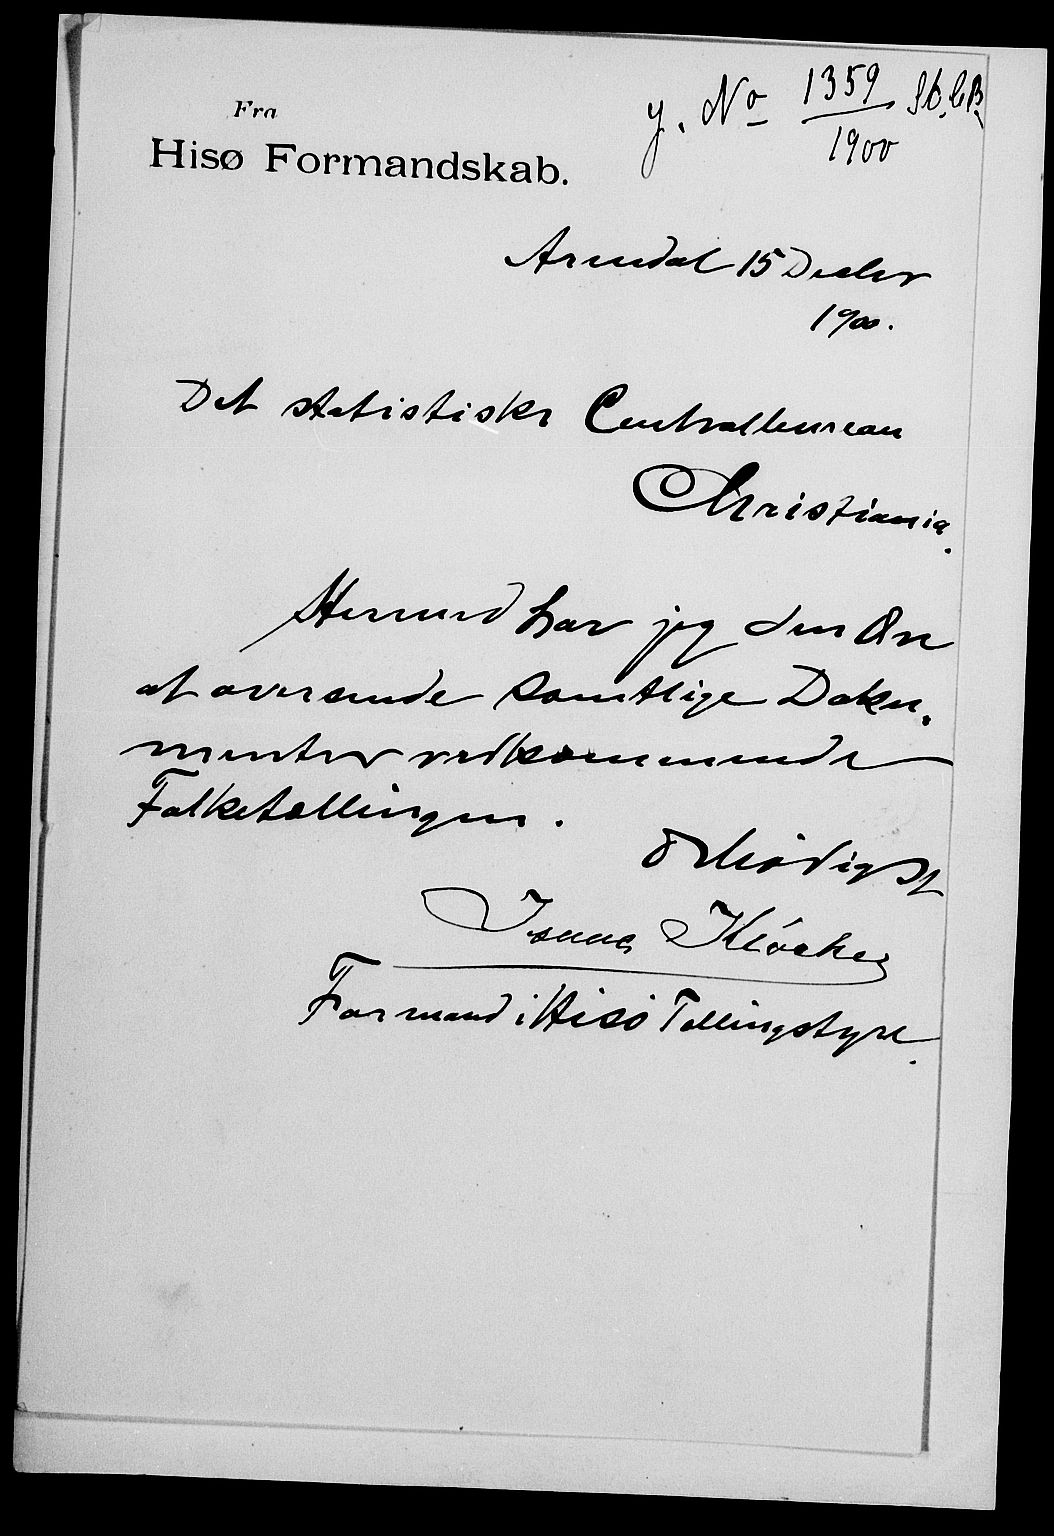 Fra
Hisø Formandskab.
J. No 1359 St. C. B.
1900
Arendal 15 Decber
1900.
Det statistiske Centralbureau
Christiania.
Hermed har jeg den Ære
at oversende samtlige Doku-
menter vedkommende
Folketællingen.
Ærbødigst
Isaac Kløcker
Formand i Hisø Tællingstyre.